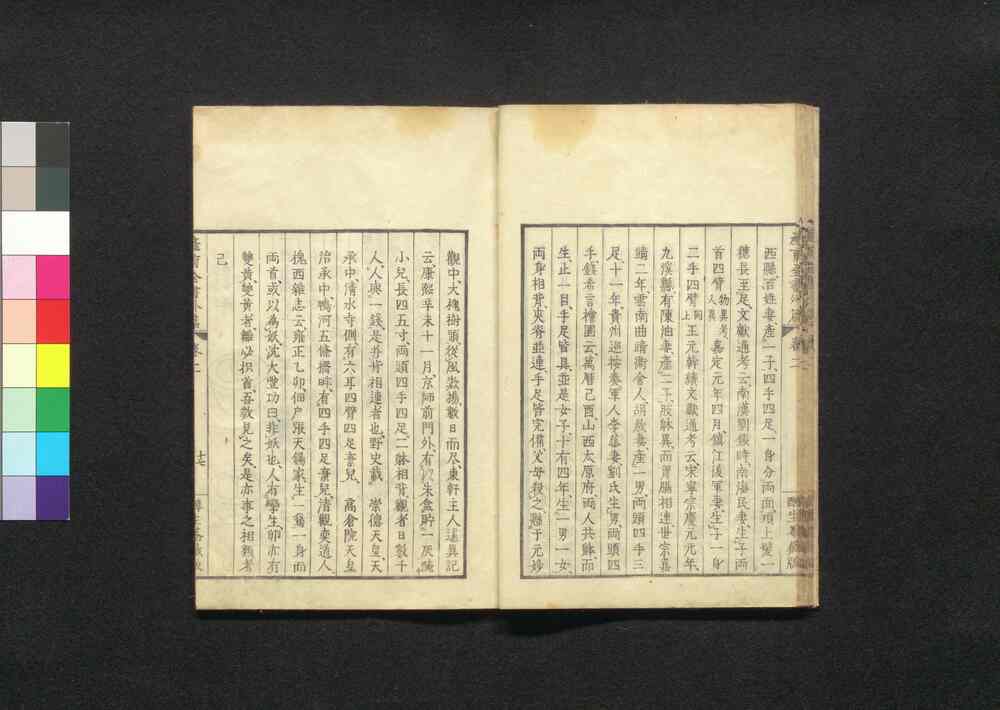 西縣、百姓妻產一子、四手四足、一身分兩面、頂上髮一
穗、長至足、文獻通考云、南漢劉鋹時、南海民妻生子、兩
首四臂、物異考人異嘉定元年四月、鎮江後軍妻生子、一身
二手四臂、同上王元幹續文獻通考云、宋寧宗慶元元年、
九溪縣有陳油妻產二子、肢體異、而胃腸相連、世宗嘉
靖二年、雲南曲靖衛舍人、胡敖妻產一男、兩頭四手三
足、十一年、貴州巡按奏、軍人李蕃妻劉氏生男、兩頭四
手、錢希言獪園云、萬曆己酉、山西太原府、兩人共體、而
生止一目、手足皆具、並是女子、十有四年、生一男一女、
兩身相背、夾脊並連、手足皆完備、父母殺之、懸于元妙
觀中、大槐樹頭、從風敭揚、數日而尽、東軒主人述異記
云、康熙辛未十一月、京師前門外、有以朱盒貯一灰醃
小兒、長四五寸、兩頭四手四足、二體相背、觀者日數千
人、人與一錢、是亦背相連者也、野史載 崇德天皇、天
承中、清水寺側、有六耳四臂四足棄兒、 高倉院天皇
治承中、鴨河五條橋畔、有四手四足棄兒、清觀奕道人
槐西雜志云、雍正乙卯、佃戶張天錫家、生一鵞、一身而
兩首、或以為妖、沈大豐功曰、非妖也、人有孿生、卵亦有
雙黃、雙黃者、雛必枳首、吾數見之矣、是亦事之相類者
已
卷二
十七